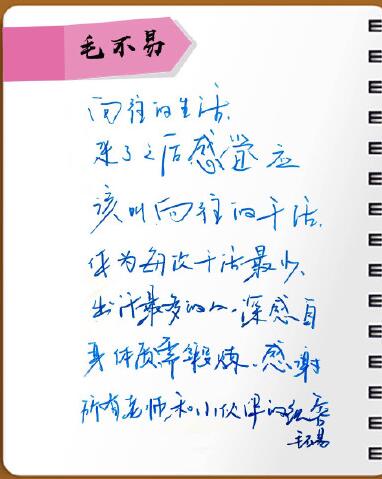 毛不易
向往的生活,
来了之后感觉应
该叫向往的干活,
作为每次干活最少,
出汗最多的人,深感自
身体质需锻炼,感谢
所有老师和小伙伴的包容
毛不易